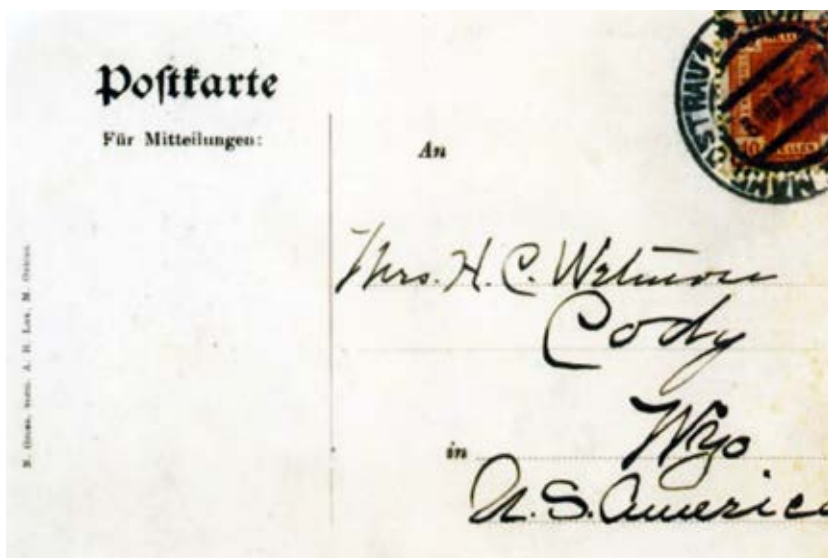 Postkarte
Für Mitteilungen:
An
Mrs. H. C. Wetmore
Cody
in Wyo
U.S. America
MÄHR. OSTRAU